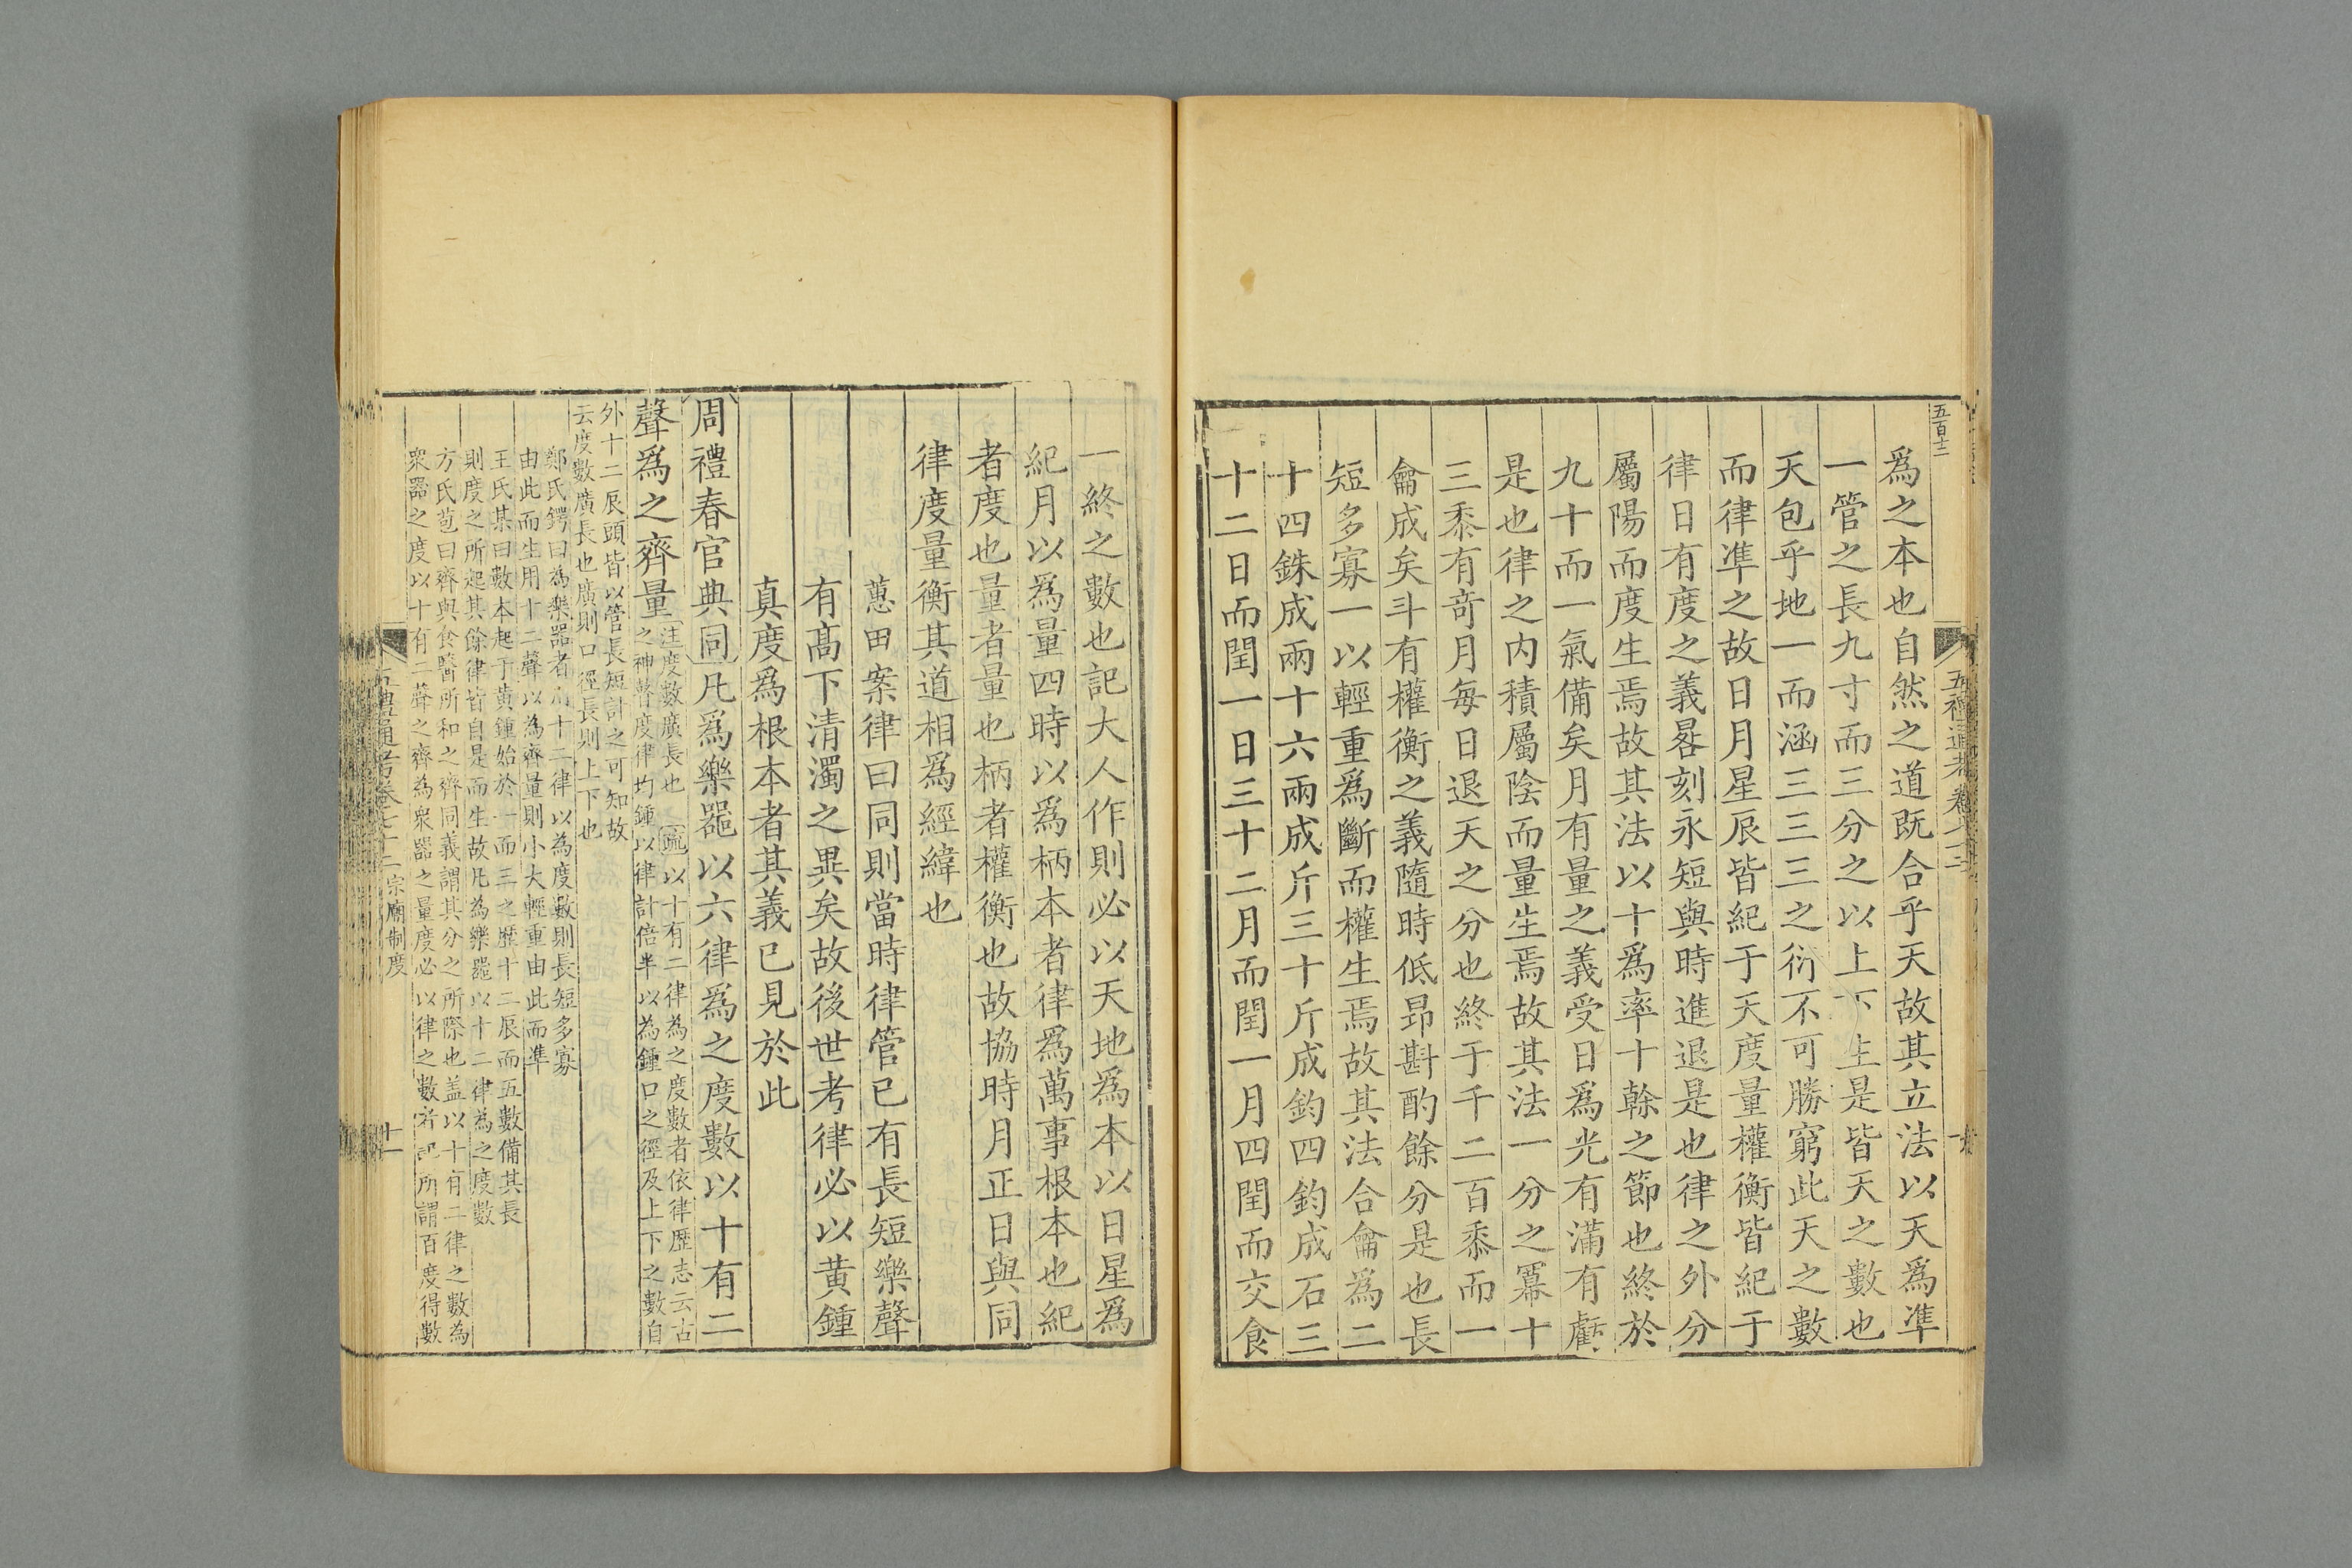 五百十二
爲之本也自然之道既合乎天故其立法以天爲準
一管之長九寸而三分之以上下生是皆天之數也
天包乎地一而涵三三三之衍不可勝窮此天之數
而律準之故日月星辰皆紀于天度量權衡皆紀于
律日有度之義晷刻永短與時進退是也律之外分
屬陽而度生焉故其法以十爲率十榦之節也終於
九十而一氣備矣月有量之義受日爲光有滿有虧
是也律之内積屬陰而量生焉故其法一分之冪十
三黍有竒月每日退天之分也終于千二百黍而一
龠成矣斗有權衡之義隨時低昂斟酌餘分是也長
短多寡一以輕重爲斷而權生焉故其法合龠爲二
十四銖成兩十六兩成斤三十斤成鈞四鈞成石三
十二日而閏一日三十二月而閏一月四閏而交食
一終之數也記大人作則必以天地爲本以日星爲
紀月以爲量四時以爲柄本者律爲萬事根本也紀
者度也量者量也柄者權衡也故協時月正日與同
律度量衡其道相爲經緯也
蕙田案律曰同則當時律管已有長短樂聲
有髙下清濁之異矣故後世考律必以黄鍾
真度爲根本者其義已見於此
周禮春官典同凡爲樂器以六律爲之度數以十有二
聲爲之齊量
注度數廣長也 疏以十有二律為之度數者依律歷志云古
之神瞽度律均鍾以律計倍半以為鍾口之徑及上下之數自
外十二辰頭皆以管長短計之可知故
云度數廣長也廣則口徑長則上下也
鄭氏鍔曰為樂器者用十二律以為度數則長短多寡
由此而生用十二聲以為齊量則小大輕重由此而準
王氏某曰數本起于黄鍾始於一而三之歴十二辰而五數備其長
則度之所起其餘律皆自是而生故凡為樂器以十二律為之度數
方氏苞曰齊與食醫所和之齊同義謂其分之所際也盖以十有二律之數為
衆器之度以十有二聲之齊為衆器之量度必以律之數者記所謂百度得數
五禮通考卷七十二宗廟制度
十一